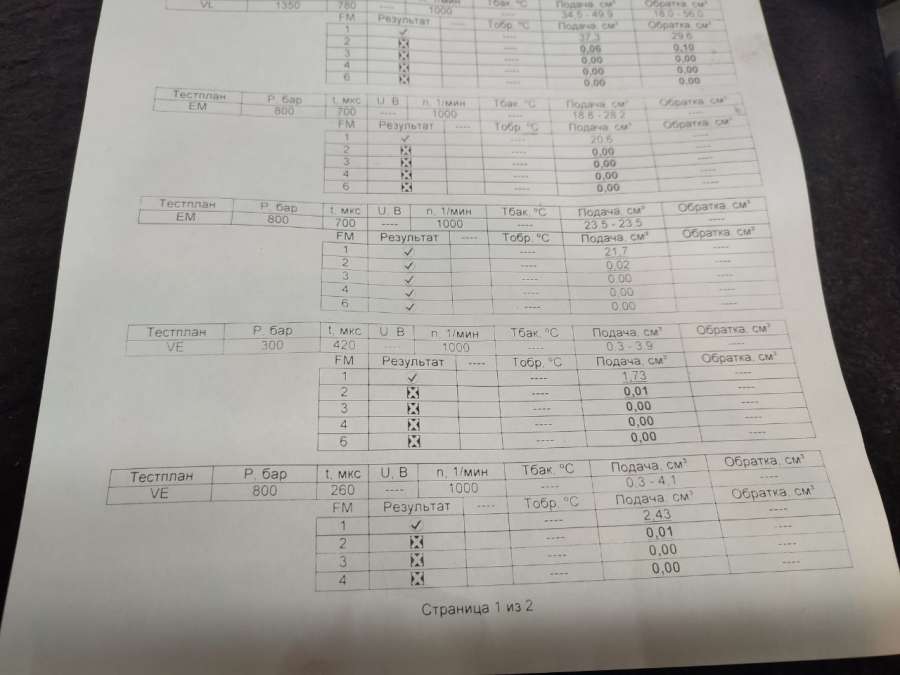 VL 1350 780 ---- 1000 34.5 - 49.9 18.0 - 56.0
FM Результат ---- Тобр. °C Подача. см³ Обратка. см³
1 ✓ ---- 37,3 29,6
2 ---- 0,06 0,10
3 ---- 0,00 0,00
4 ---- 0,00 0,00
6 ---- 0,00 0,00
Тестплан Р. бар t, мкс U. В n. 1/мин Тбак. °C Подача. см³ Обратка. см³
EM 800 700 ---- 1000 ---- 18.8 - 28.2 ----
FM Результат ---- Тобр. °C Подача. см³ Обратка. см³
1 ✓ ---- 20,6 ----
2 ---- 0,00 ----
3 ---- 0,00 ----
4 ---- 0,00 ----
6 ---- 0,00 ----
Тестплан Р. бар t, мкс U. В n. 1/мин Тбак. °C Подача. см³ Обратка. см³
EM 800 700 ---- 1000 ---- 23.5 - 23.5 ----
FM Результат ---- Тобр. °C Подача. см³ Обратка. см³
1 ✓ ---- 21,7 ----
2 ✓ ---- 0,02 ----
3 ✓ ---- 0,00 ----
4 ✓ ---- 0,00 ----
6 ✓ ---- 0,00 ----
Тестплан Р. бар t, мкс U. В n. 1/мин Тбак. °C Подача. см³ Обратка. см³
VE 300 420 ---- 1000 ---- 0.3 - 3.9 ----
FM Результат ---- Тобр. °C Подача. см³ Обратка. см³
1 ✓ ---- 1,73 ----
2 ---- 0,01 ----
3 ---- 0,00 ----
4 ---- 0,00 ----
6 ---- 0,00 ----
Тестплан Р. бар t, мкс U, В n, 1/мин Тбак. °C Подача, см³ Обратка, см³
VE 800 260 ---- 1000 ---- 0.3 - 4.1 ----
FM Результат ---- Тобр. °C Подача, см³ Обратка, см³
1 ✓ ---- 2,43 ----
2 ---- 0,01 ----
3 ---- 0,00 ----
4 ---- 0,00 ----
Страница 1 из 2